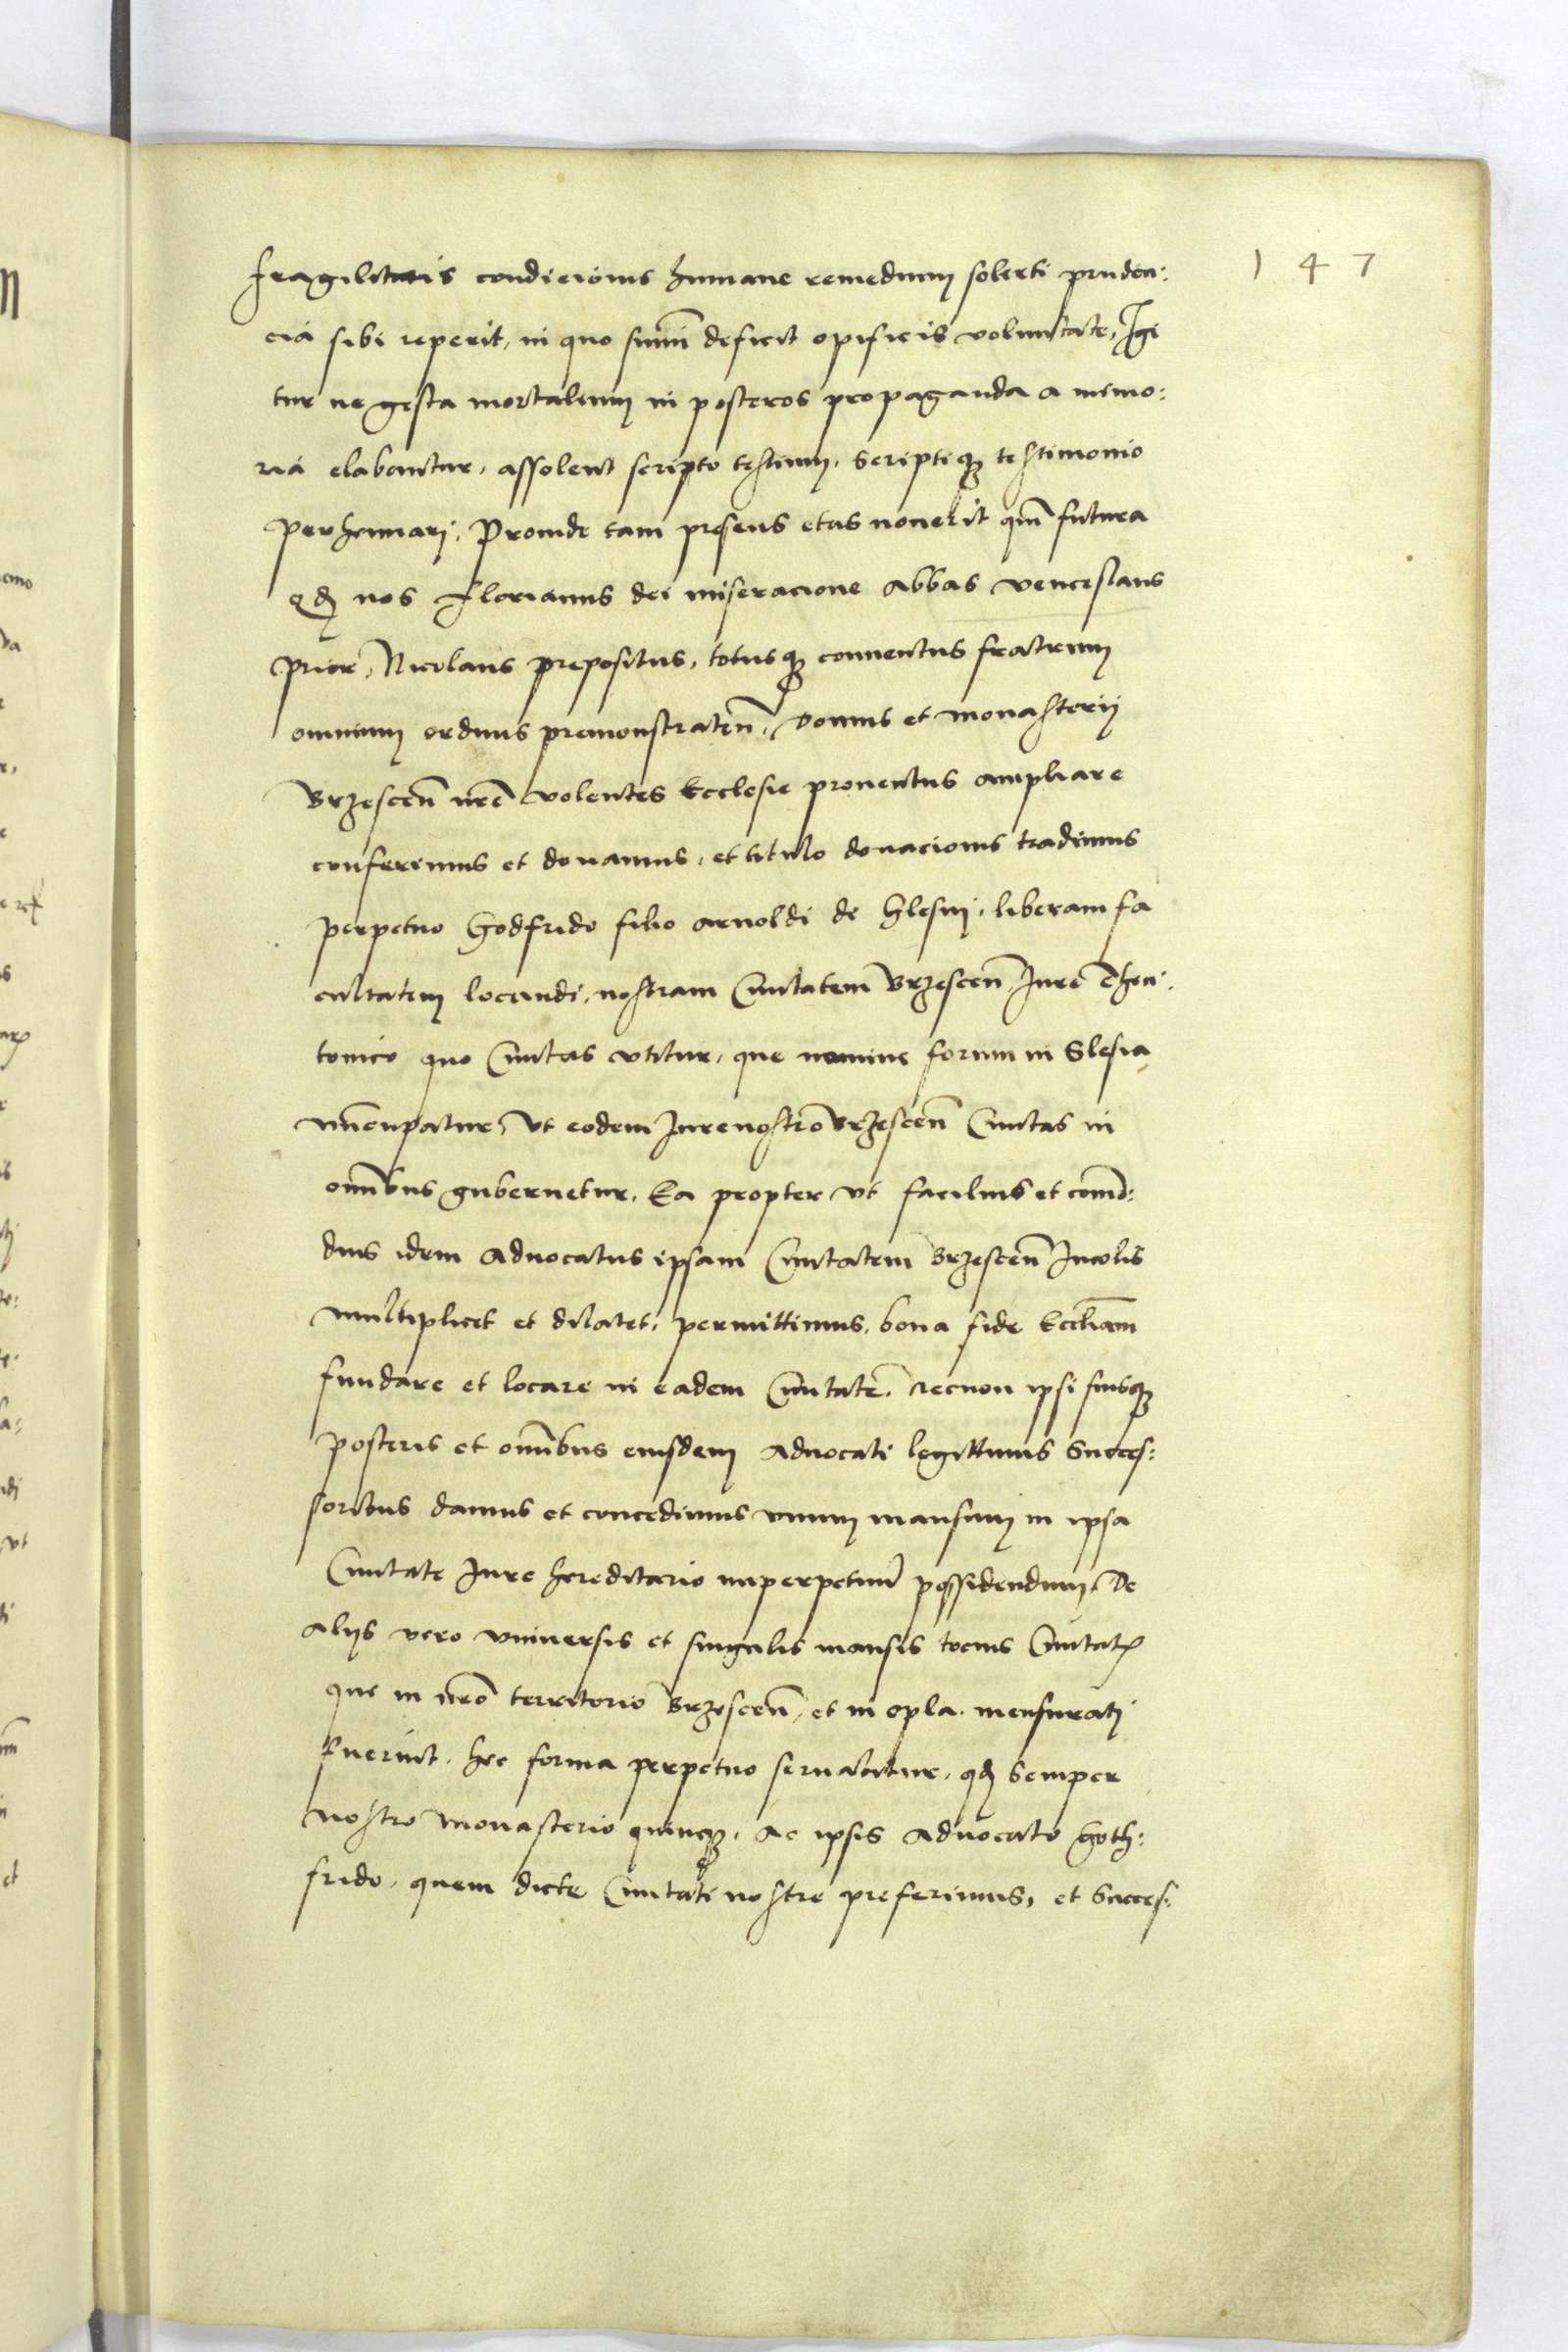 147
fragilitatis condicionis humane remedium solerti pruden:
cia sibi reperit, in quo summi deficit opificis voluntate, Igi
tur ne gesta mortalium in posteros propaganda a memo:
ria elabantur, assolent scripto testium, scriptiq3 testimonio
perhennari, Proinde tam presens etas noverit qm̄ futura
qd nos Florianus dei miseracione Abbas Venceslaus
Prior, Nicolaus prepositus, totusq3 conventus fratrum
omnium ordinis premonstraten̄, domus et monasterij
Brzescen̄ nrē volentes Ecclesie proventus ampliare
conferimus et donamus, et titulo donacionis tradimus
perpetuo Godfrido filio Arnoldi de Slesin, liberam fa
cultatem locandi, nostram Civitatem Brzescen̄ Jure Theu:
tonico quo Civitas vtitur, que nomine forum in Slesia,
nuncupatur, Vt eodem Jure nostro Brzescen̄ Civitas in
omībus gubernetur, Ea propter vt facilius et commō:
dius idem Advocatus ipsam Civitatem Brzescen̄ Incolis
multiplicet et dilatet, permittimus, bona fide Eccliam
fundare et locare in eadem Civitate, necnon ipsi suisq3
posteris et omībus eiusdem Advocati legittimis Succes:
soribus damus et concedimus vnum mansum in ipsa
Civitate Jure hereditario inperpetuum possidendum, De
alijs vero vniversis et singulis mansis tocius Civitatis
que in nrō territorio Brzescen̄, et in opla. mensurati
fuerint. hec forma perpetuo servabitur, qd semper
nostro monasterio quinq3, ac ipsis Advocato Goth:
frido, quem dicte Civitati nostre preferimus, et Succes: